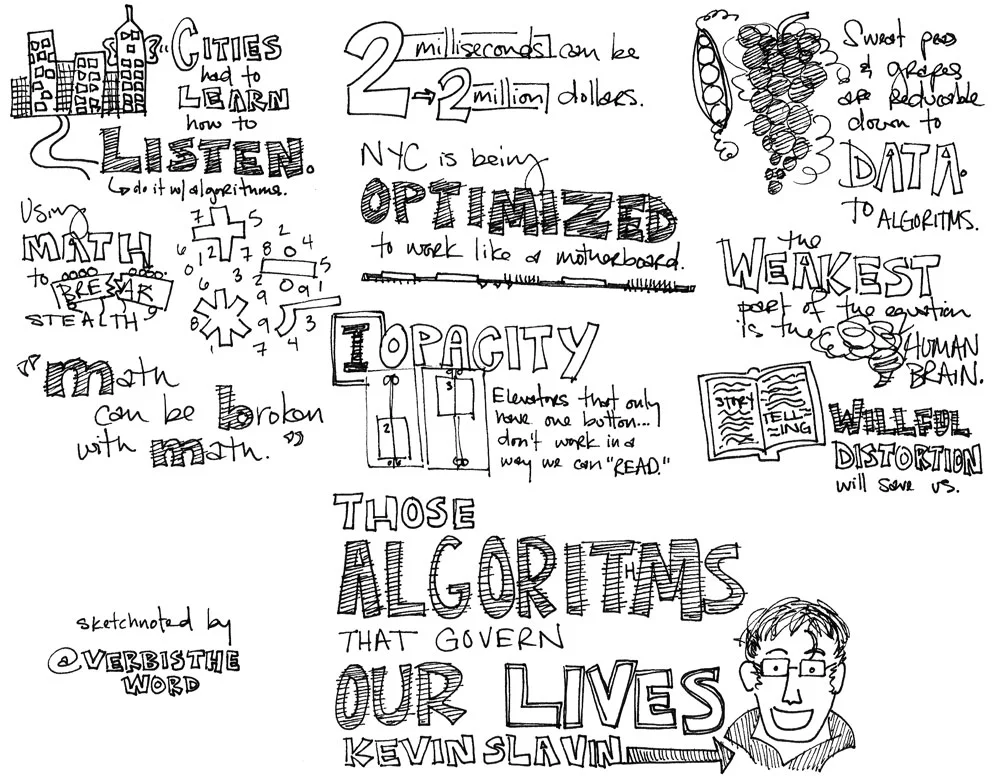 CITIES
had to
LEARN
how to
LISTEN.
do it w/ algorithms.
Using
MATH
to
BREAK
STEALTH
7 5
2
6 1 2 7 8 0 4
0 6 3 2 0 9 1 5
9
8 9 3
1 7 4
"math
can be broken
with math."
2 milliseconds can be
2 million dollars.
NYC is being
OPTIMIZED
to work like a motherboard.
I OPACITY
3
2
Elevators that only
have one button...
don't work in a
way we can "READ."
Sweat peas
& grapes
are reducable
down to
DATA.
TO ALGORITMS.
the
WEAKEST
part of the equation
is the
HUMAN
BRAIN.
STORY
TELL
ING
WILLFUL
DISTORTION
will save us.
THOSE
ALGORITHMS
THAT GOVERN
OUR LIVES
KEVIN SLAVIN
sketchnoted by
@VERBISTHE
WORD